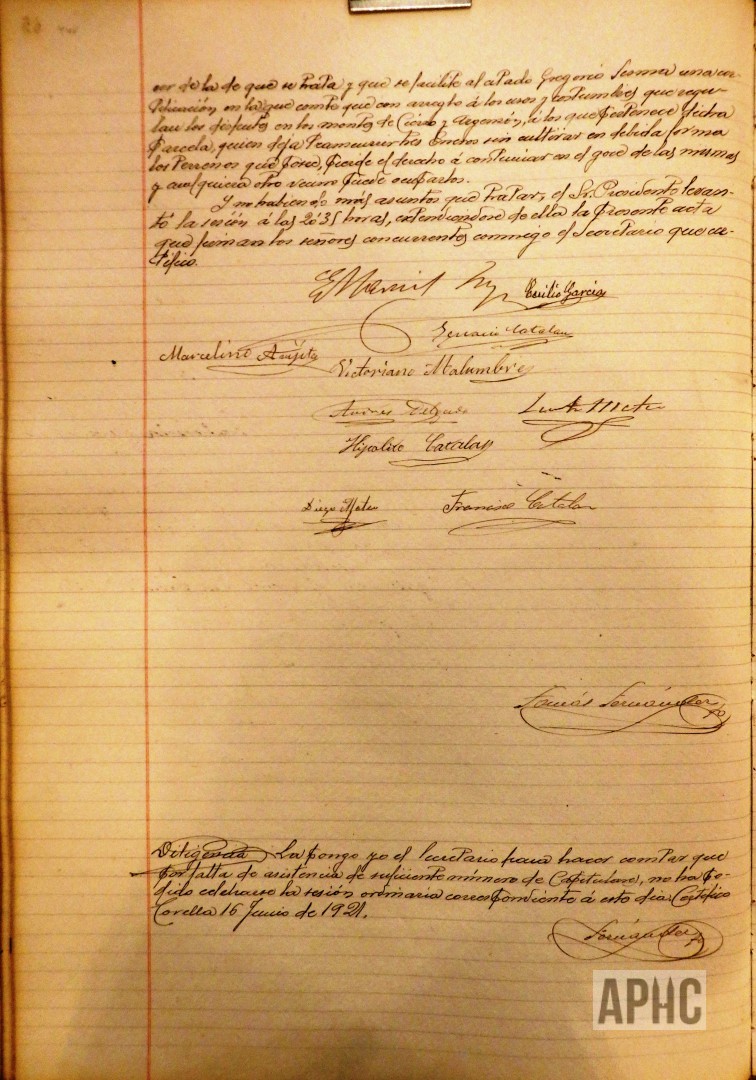 cer de la de que se trata y que se facilite al citado Gregorio Sesma una cer-
tificación en la que conste que con arreglo á los usos y costumbres que regu-
lan los disfrutes en los montes de Cierzo y Argenzón, á los que pertenece dicha
parcela, quien deja transcurrir tres Eneros sin cultivar en debida forma
los terrenos que posee, pierde el derecho á continuar en el goce de las mismas
y cualquiera otro vecino puede ocuparlos.
Y no habiendo más asuntos que tratar, el Sr. Presidente levan-
tó la sesión á las 20'35 horas, extendiéndose de ella la presente acta
que firman los señores concurrentes conmigo el Secretario que cer-
tifico.
Emilio García
Ignacio Catalan
Marcelino
Victoriano Malumbres
Delgado
Luis Mateo
Hipolito Catalan
Diego Mateo Francisco Catalan
Tomás Fernández
Diligencia La pongo yo el Secretario para hacer constar que
por falta de asistencia de suficiente número de Capitulares, no ha po-
dido celebrarse la sesión ordinaria correspondiente á este dia. Certifico
Corella 16 Junio de 1921.
Fernández
APHC